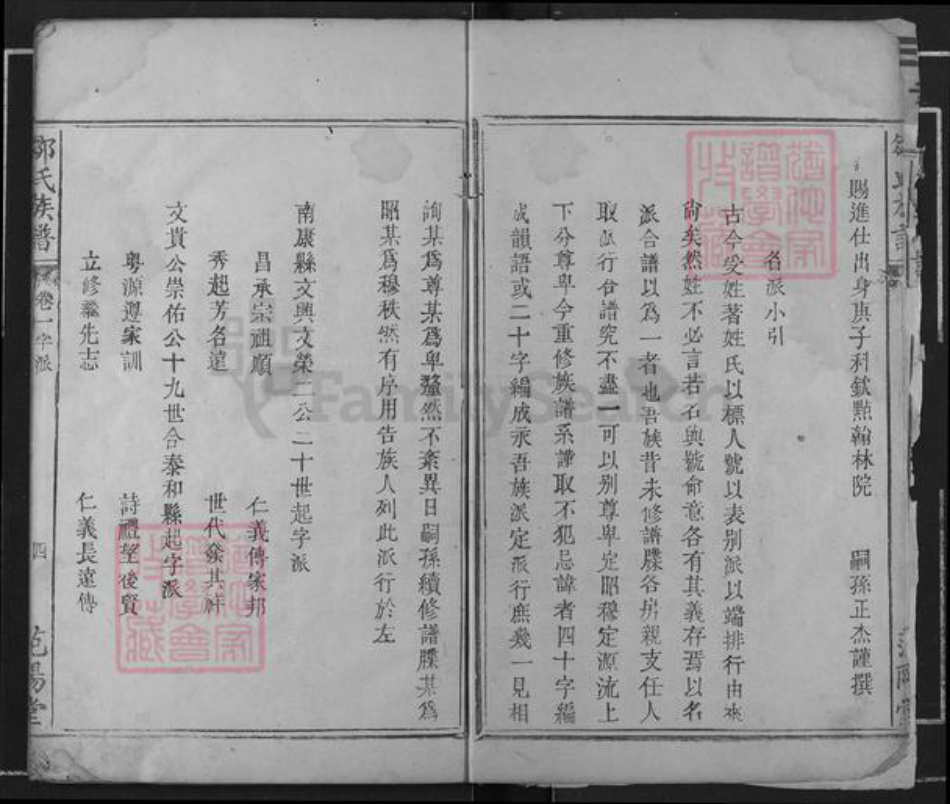 賜進仕出身庚子科欽點翰林院　嗣孫正杰謹撰
名派小引
古今受姓著姓氏以標人號以表别派以端排行由來
尚矣然姓不必言若名與號命意各有其義存焉以名
派合譜以爲一者也吾族昔未修譜牒各房親支任人
取派行合譜究不盡一可以别尊卑定昭穆定源流上
下分尊卑今重修族譜系謹取不犯忌諱者四十字編
成韻語或二十字編成永吾族派定派行庶幾一見相
詢某爲尊某爲卑釐然不紊異日嗣孫續修譜牒某爲
昭某爲穆秩然有序用告族人列此派行於左
南康縣文興文榮二公二十世起字派
昌承宗祖順　仁義傳家邦
秀起芳名遠　世代發其祥
文貴公崇佑公十九世合泰和縣起字派
粵源遵家訓　詩禮望後賢
立修繼先志　仁義長遠傳
鄒氏族譜　卷一字派　四　范陽堂
FamilySearch